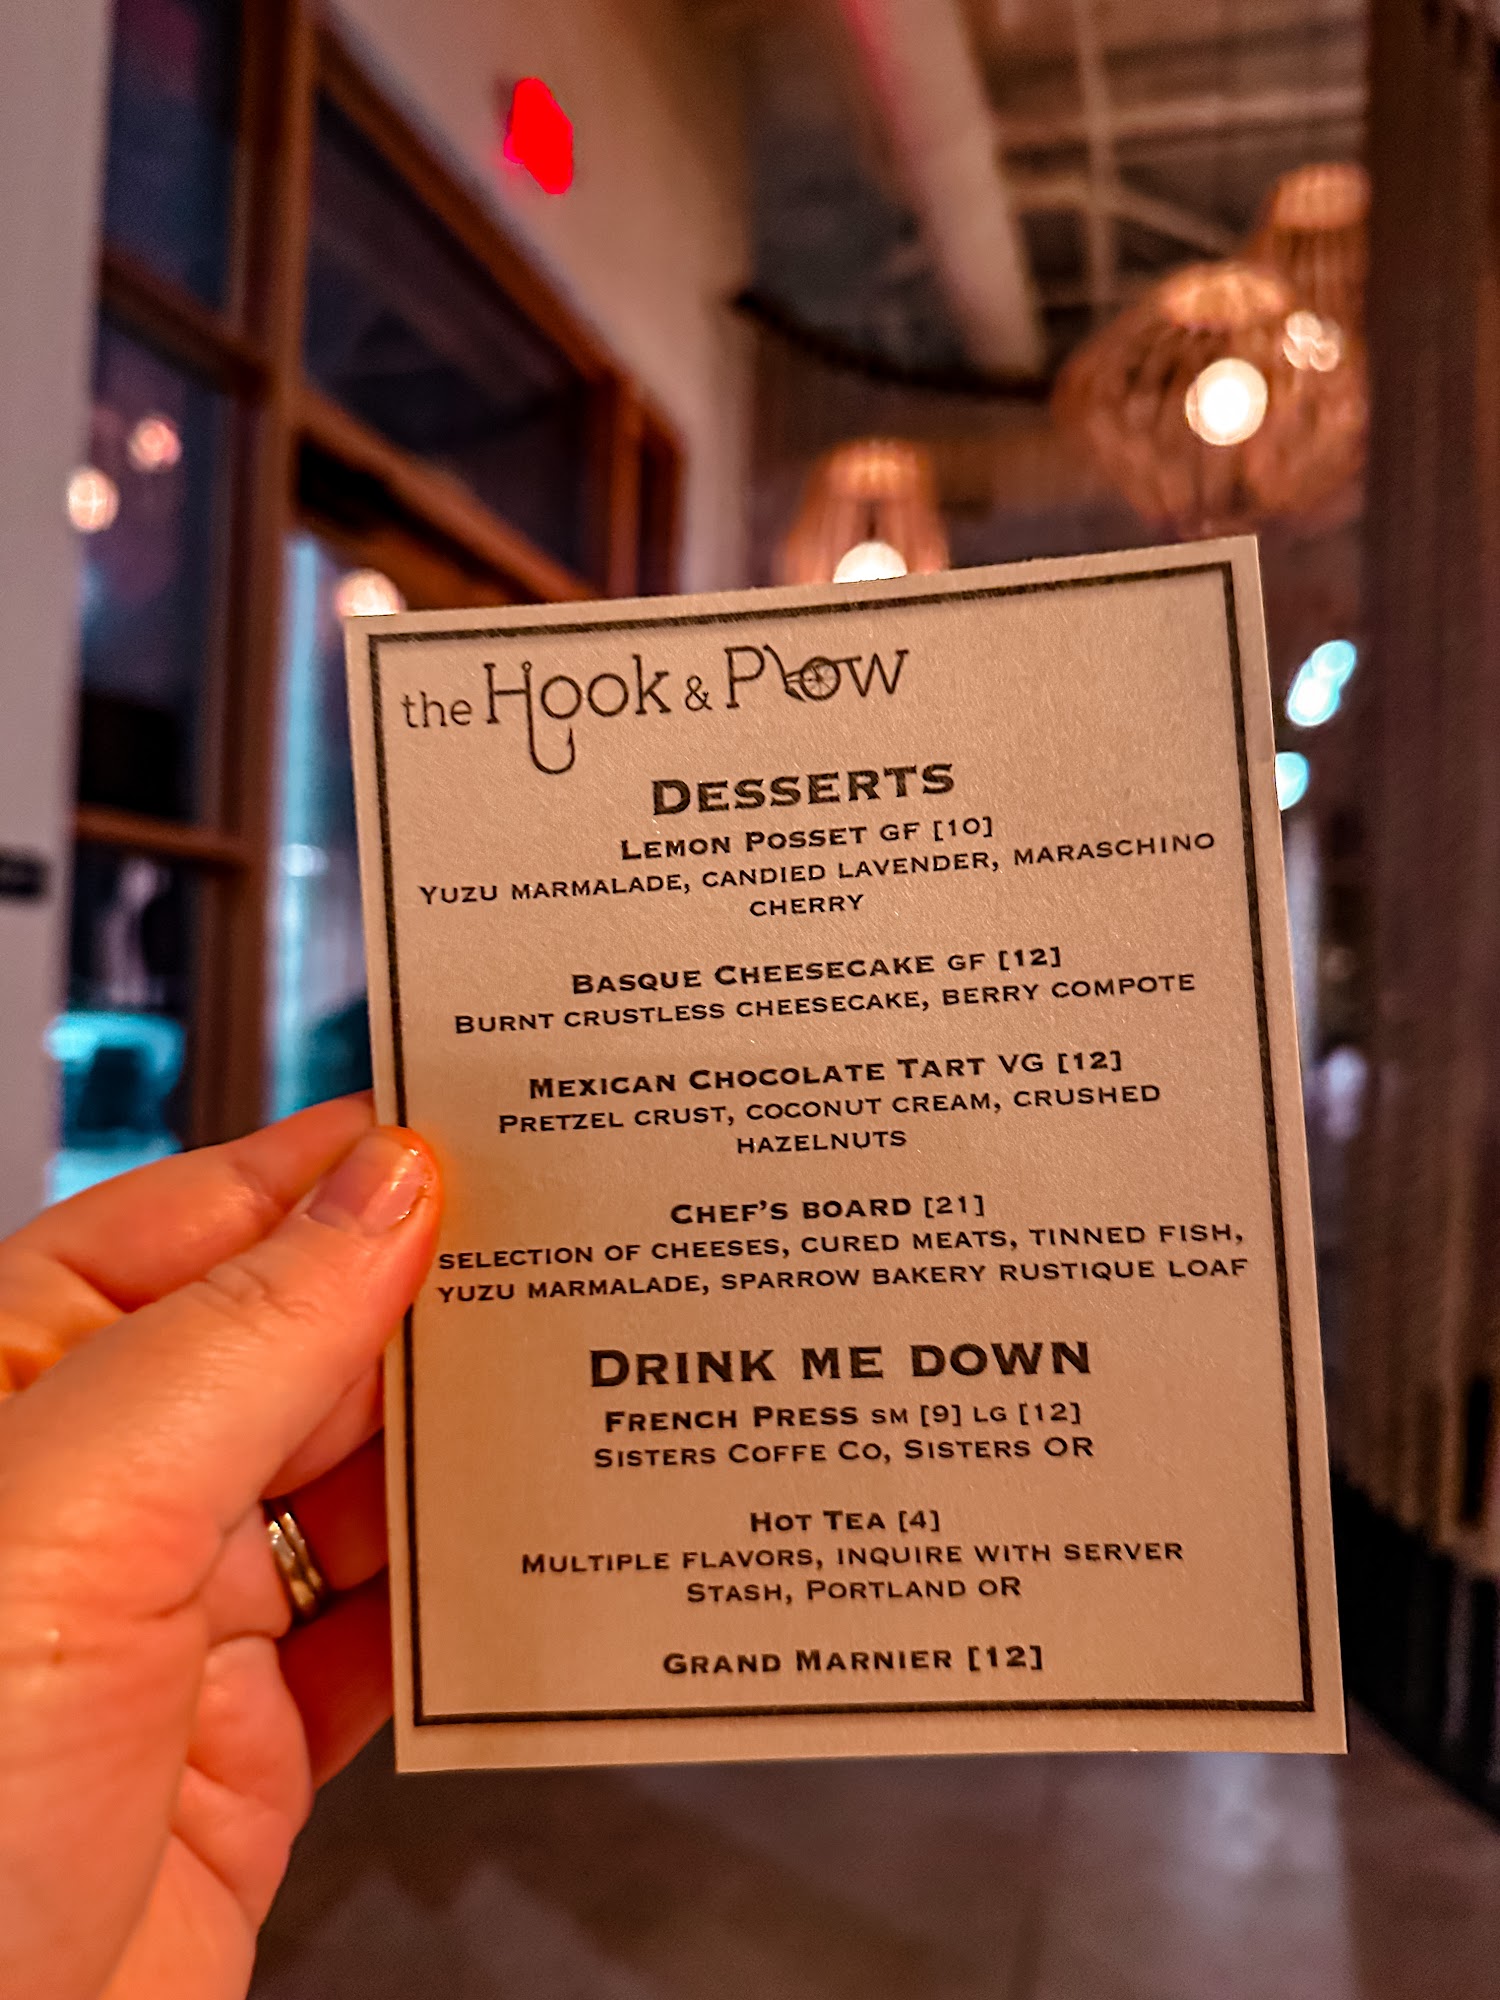 the Hook & Plow
DESSERTS
LEMON POSSET GF [10]
YUZU MARMALADE, CANDIED LAVENDER, MARASCHINO
CHERRY
BASQUE CHEESECAKE GF [12]
BURNT CRUSTLESS CHEESECAKE, BERRY COMPOTE
MEXICAN CHOCOLATE TART VG [12]
PRETZEL CRUST, COCONUT CREAM, CRUSHED
HAZELNUTS
CHEF'S BOARD [21]
SELECTION OF CHEESES, CURED MEATS, TINNED FISH,
YUZU MARMALADE, SPARROW BAKERY RUSTIQUE LOAF
DRINK ME DOWN
FRENCH PRESS SM [9] LG [12]
SISTERS COFFE CO, SISTERS OR
HOT TEA [4]
MULTIPLE FLAVORS, INQUIRE WITH SERVER
STASH, PORTLAND OR
GRAND MARNIER [12]